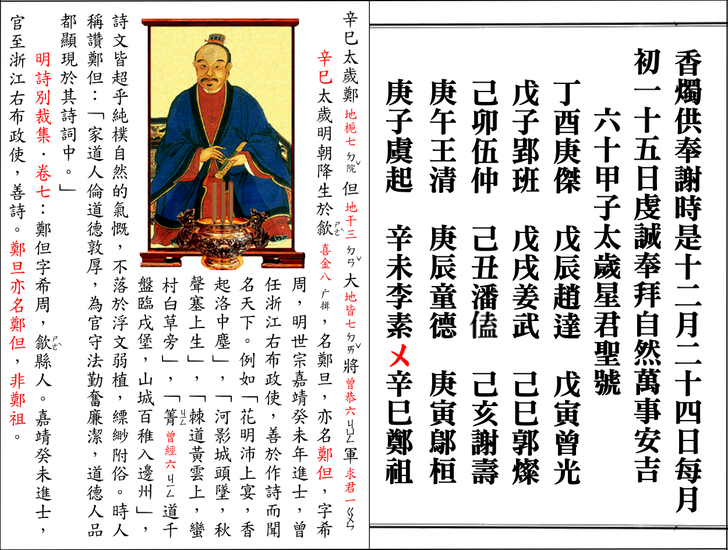 香燭供奉謝時是十二月二十四日每月
初一十五日虔誠奉拜自然萬事安吉
六十甲子太歲星君聖號
丁酉庚傑 戊辰趙達 戊寅曾光
戊子郢班 戊戌姜武 己巳郭燦
己卯伍仲 己丑潘 己亥謝壽
庚午王清 庚辰童德 庚寅鄔桓
庚子虞起 辛未李素ㄨ辛巳鄭祖
辛巳太歲鄭 地梔七 院 但 地干三 ㄉㄢˋ 大 地皆七 ㄉㄞˋ 將 曾恭六 ㄐㄧㄥ 軍 求君一
辛巳太歲明朝降生於歙 ㄕㄜˋ 喜金八，名鄭旦，亦名鄭但，字希
周，明世宗嘉靖癸未年進士，曾
任浙江右布政使，善於作詩而聞
名天下。例如「花明沛上宴，香
起洛中塵」，「河影城頭墜，秋
聲塞上生」，「棘道黃雲上，蠻
村白草旁」，「箐 曾經六 ㄐㄧㄥ 道千
盤臨戍堡，山城百稚入邊州」，
詩文皆超乎純樸自然的氣慨，不落於浮文弱植，縹緲附俗。時人
稱讚鄭但：「家道人倫道德敦厚，為官守法勤奮廉潔，道德人品
都顯現於其詩詞中。」
明詩別裁集．卷七：鄭但字希周，歙 ㄕㄜˋ 縣人。嘉靖癸未進士，
官至浙江右布政使，善詩。鄭旦亦名鄭但，非鄭祖。